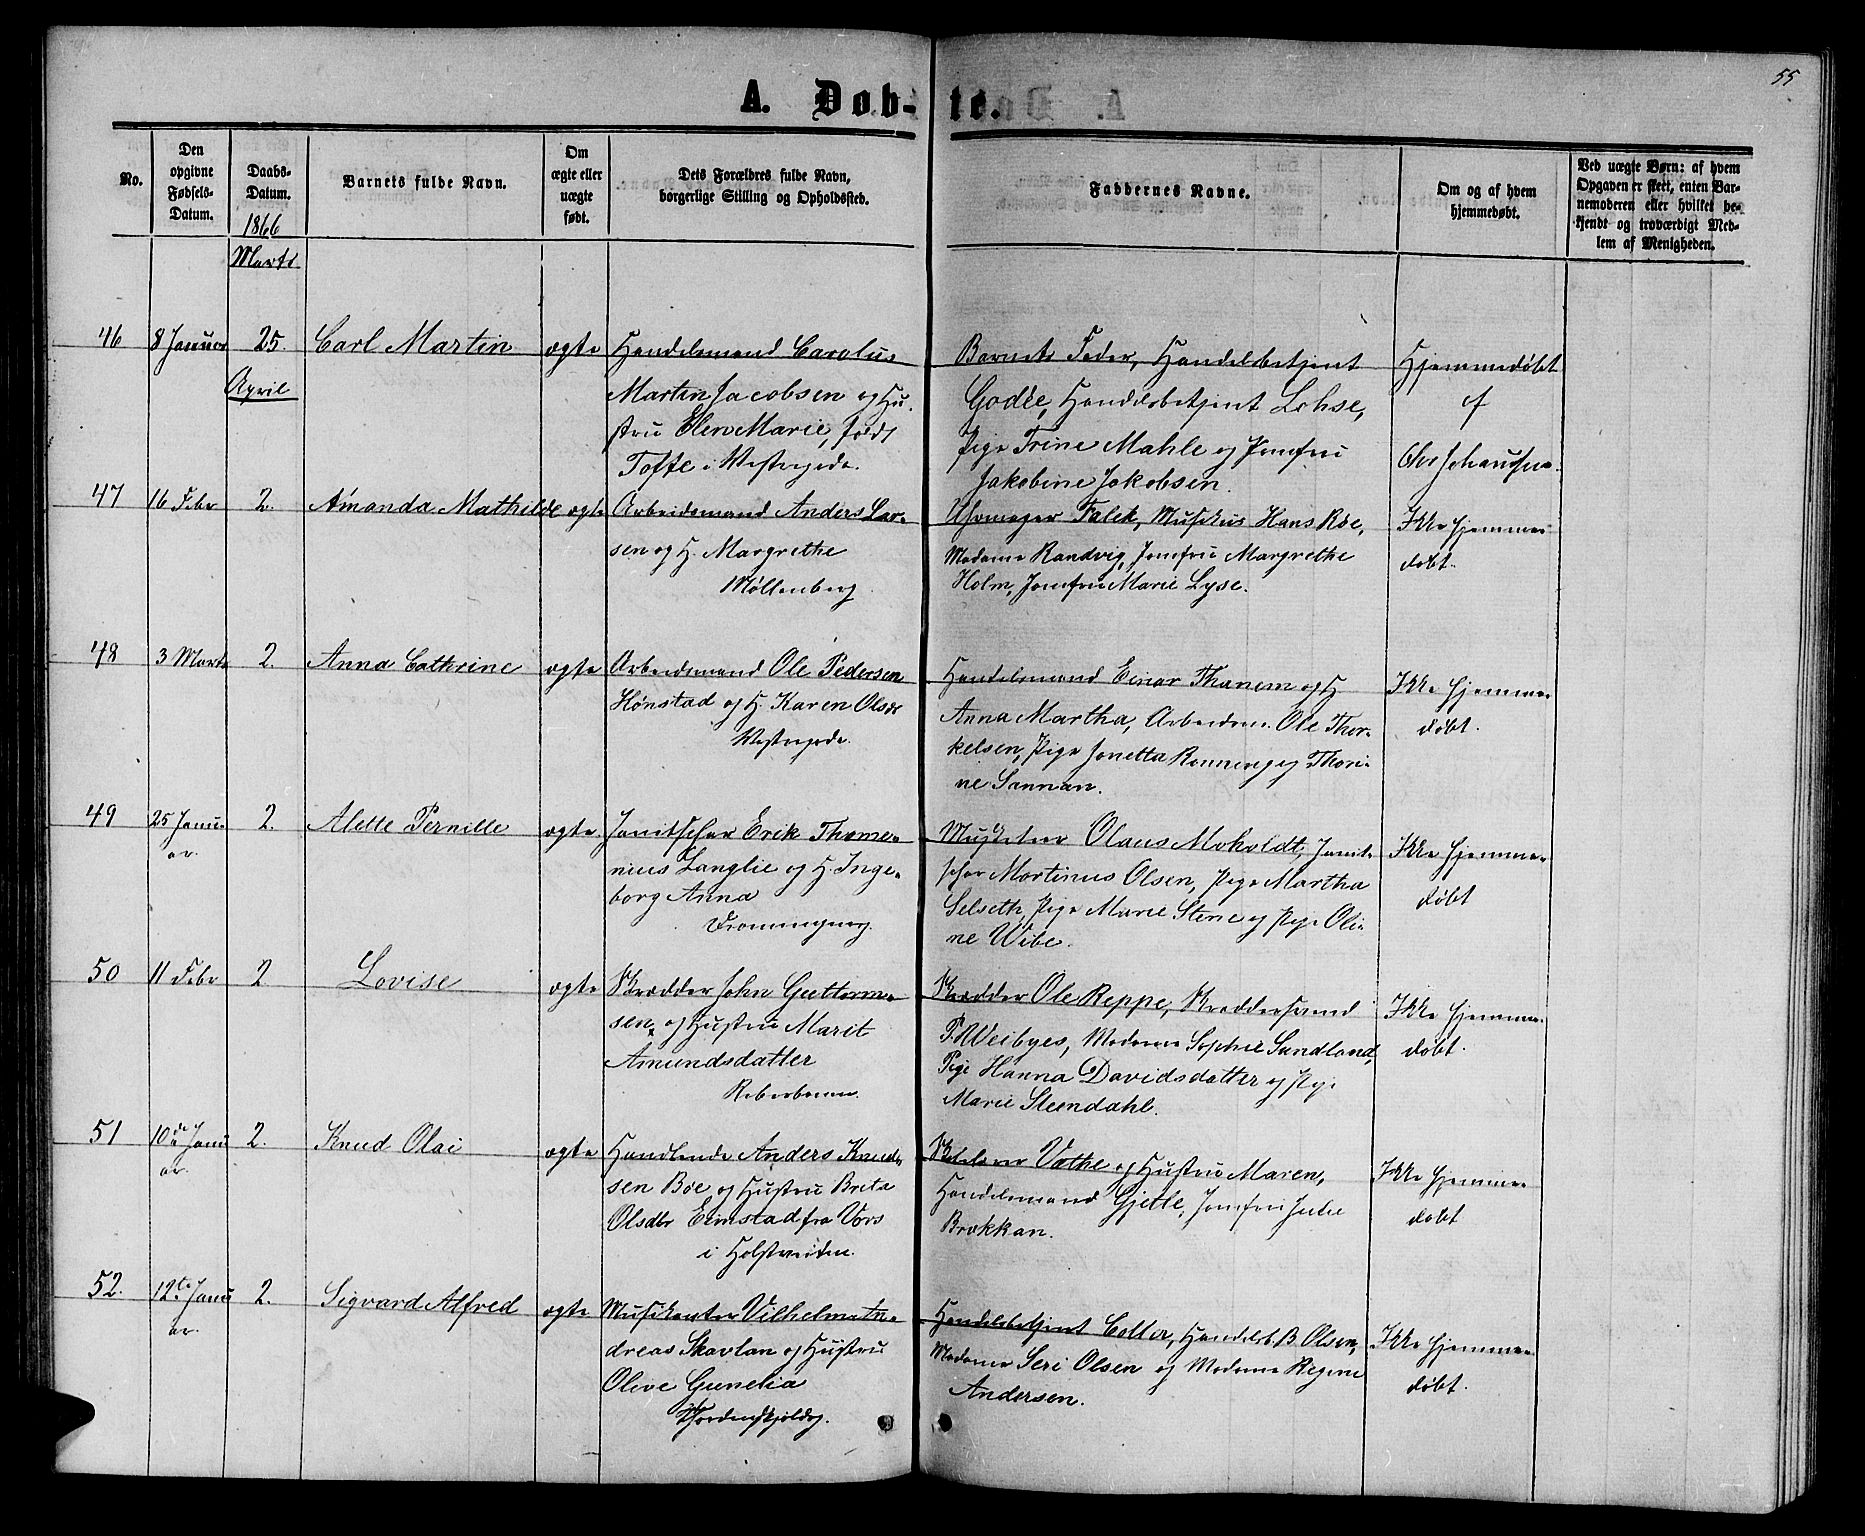 55
A. Døb-te.
No.
Den opgivne Fødsels-Datum.
Daabs-Datum.
Barnets fulde Navn.
Om ægte eller uægte født.
Dets Forældres fulde Navn, borgerlige Stilling og Opholdssted.
Faddernes Navne.
Om og af hvem hjemmedøbt.
Ved uægte Børn: af hvem Opgaven er skeet, enten Barnemoderen eller hvilket bekjendt og troværdigt Medlem af Menigheden.
1866
Marts
46 8 Januar 25. Carl Martin ægte Handelsmand Carolus
Martin Jacobsen og Hu-
stru Elen Marie, født
Toffe i Vestregade.
Barnets Fader, Handelsbetjent
Godée, Handelsbetjent Lohse,
Pige Trine Mahle og Jomfru
Jakobine Jakobsen.
Hjemmedøbt
af
April
47 16 Febr 2. Amanda Mathilde ægte Arbeidsmand Anders Lar-
sen og H. Margrethe
Møllenberg
Falck, Musikus Hans Röe,
Madame Randvig, Jomfru Margrethe
Holm, Jomfru Marie Lyse.
Ikke hjemme-
døbt.
48 3 Marts 2. Anna Cathrine ægte Arbeidsmand Ole Pedersen
Hønstad og H. Karen Olsdr
Vestregade.
Handelsmand Einar Thanem og H
Anna Martha, Arbeidsm. Ole Thor-
kelsen, Pige Jonetta Rönning og Thori-
ne Sannan.
Ikke hjemme-
døbt.
49 25 Janu-
ar. 2. Alette Pernille ægte. Janitschar Erik Thome-
nius Langlie og H. Inge-
borg Anna
Musketeer Olaus Moholdt, Janit-
schar Martinus Olsen, Pige Martha
Selseth, Pige Marie Stene og Pige Oli-
ne Wibe.
Ikke hjemme-
døbt
50 11 Febr 2. Lovise ægte Skrædder John Guttorm-
sen og Hustru Marit
Amundsdatter
Reberbanen.
Skrædder Ole Reppe, Skræddersvend
P. Weibyes, Madame Sophie Sundland,
Pige Hanna Davidsdatter og Pige
Marie Steendahl.
Ikke hjemme-
døbt.
51 10de Janu
ar. 2. Knud Olai ægte Handlende Anders Knud-
sen Böe og Hustru Brita
Olsdtr Eimstad fra Vors
i Holstveiten.
Vathe og Hustru Maren,
Handelsmand Gjetle, Jomfru Julie
Brækkan.
Ikke hjemme-
døbt
52. 12te Janu
ar. 2. Sigvard Alfred ægte Musikanten Vilhelm An-
dreas Skavlan og Hustru
Olive Gunelia
Handelsbetjent Colter, Handelsb. B Olsen,
Madame Seri Olsen og Madame Regine
Andersen.
Ikke hjemme-
døbt.